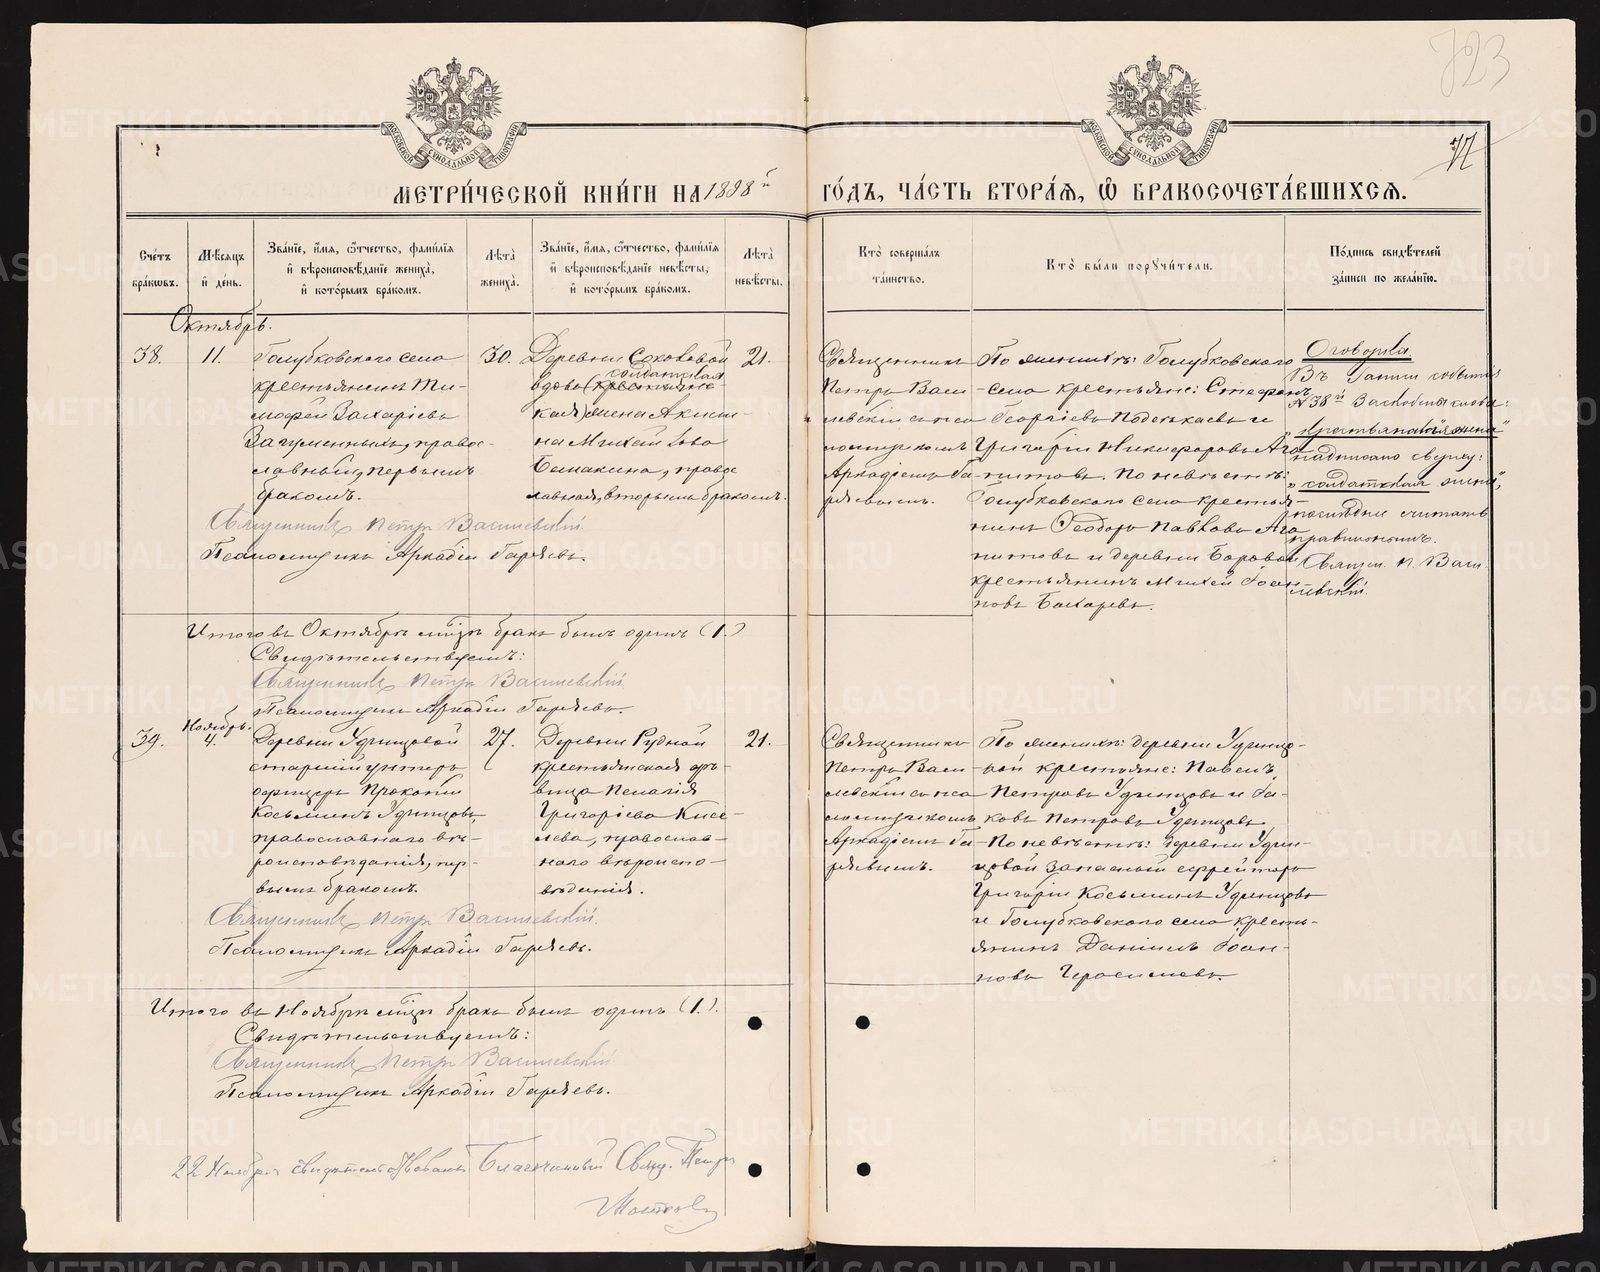 723
77
МОСКОВСКОЙ СѴНОДАЛЬНОЙ ТИПОГРАФІИ
МОСКОВСКОЙ СѴНОДАЛЬНОЙ ТИПОГРАФІИ
МЕТРИ́ЧЕСКОЙ КНИ́ГИ НА 1898й ГО́ДЪ, ЧА́СТЬ ВТОРА́Я, Ѡ БРАКОСОЧЕТА́ВШИХСЯ.
Сче́тъ бра́кѡвъ.
Мѣ́сяцъ и҆ де́нь.
Зва́нїе, и҆́мя, ѻ҆́тчество, фами́лїя и҆ вѣроисповѣ́данїе жениха̀, и҆ кото́рымъ бра́комъ.
Лѣ́та жениха̀.
Зва́нїе, и҆́мя, ѻ҆́тчество, фами́лїя и҆ вѣроисповѣ́данїе невѣ́сты, и҆ кото́рымъ бра́комъ.
Лѣ́та невѣ́сты.
Кто̀ соверша́лъ та́инство.
Кто̀ бы́ли порꙋчи́тели.
По́дпись свидѣ́телей за́писи по жела́нїю.
Октябрь.
38.
11.
Голубковскаго села
крестьянинъ Ти-
мофей Захаріевъ
Загуменныхъ, право-
славный, первымъ
бракомъ.
30.
Деревни Соколовой
солдатская
вдова (крестьянс-
кая) жена Акили-
на Михеи лова
Бачакина, право-
славная, вторымъ бракомъ.
21.
Священникъ
Петръ Васи-
левскій съ пса
ломщикомъ
Аркадіемъ Га-
ряевымъ.
По женихѣ: Голубковскаго
села крестьяне: Стефанъ
Георгіевъ Подкаевъ и
Григорій Никифоровъ Ага
питовъ. По невѣстѣ:
Голубковскаго села крестья-
нинъ Ѳеодоръ Павловъ Ага
питовъ и деревни Боровой
крестьянинъ Михей Іоан-
новъ Бахаревъ.
Оговорка
Въ статьи событія
№ 38й
надписано сверху:
„солдатская жена“,
считать
правильнымъ.
Священ. П. Васи-
левскій.
Священникъ Петръ Василевскій
Псаломщикъ Аркадій Гаряевъ.
Итого въ Октябрѣ мѣсяцѣ бракъ былъ одинъ (1.)
Свидѣтельствуемъ:
Священникъ Петръ Василевскій
Псаломщикъ Аркадій Гаряевъ.
Ноябрь.
39.
4.
Деревни Удинцовой
старшій унтеръ
офицеръ Прокопій
Косьминъ Удинцовъ
православнаго вѣ-
роисповѣданія, пер-
вымъ бракомъ.
27.
Деревни Рудной
крестьянская дѣ-
вица Пелагія
Григорьева Кисе-
лева, православ-
наго вѣроиспо-
вѣданія.
21.
Священникъ
Петръ Васи-
левскій съ пса
ломщикомъ
Аркадіемъ Га-
ряевымъ.
По женихѣ: деревни Удинцо-
вой крестьяне: Павелъ
Петровъ Удинцовъ и Іа-
ковъ Петровъ Удинцовъ.
По невѣстѣ: деревни Удин-
цовой запасный ефрейторъ
Григорій Косьминъ Удинцовъ
и Голубковскаго села кресть-
янинъ Даніилъ Іоан-
новъ Герасимовъ.
Священникъ Петръ Василевскій.
Псаломщикъ Аркадій Гаряевъ.
Итого въ Ноябрѣ мѣсяцѣ бракъ былъ одинъ (1.).
Свидѣтельствуемъ:
Священникъ Петръ Василевскій
Псаломщикъ Аркадій Гаряевъ.
22 Ноября свидѣтельствовалъ Благочинный Свящ. Петръ
METRIKI.GASO-URAL.RU